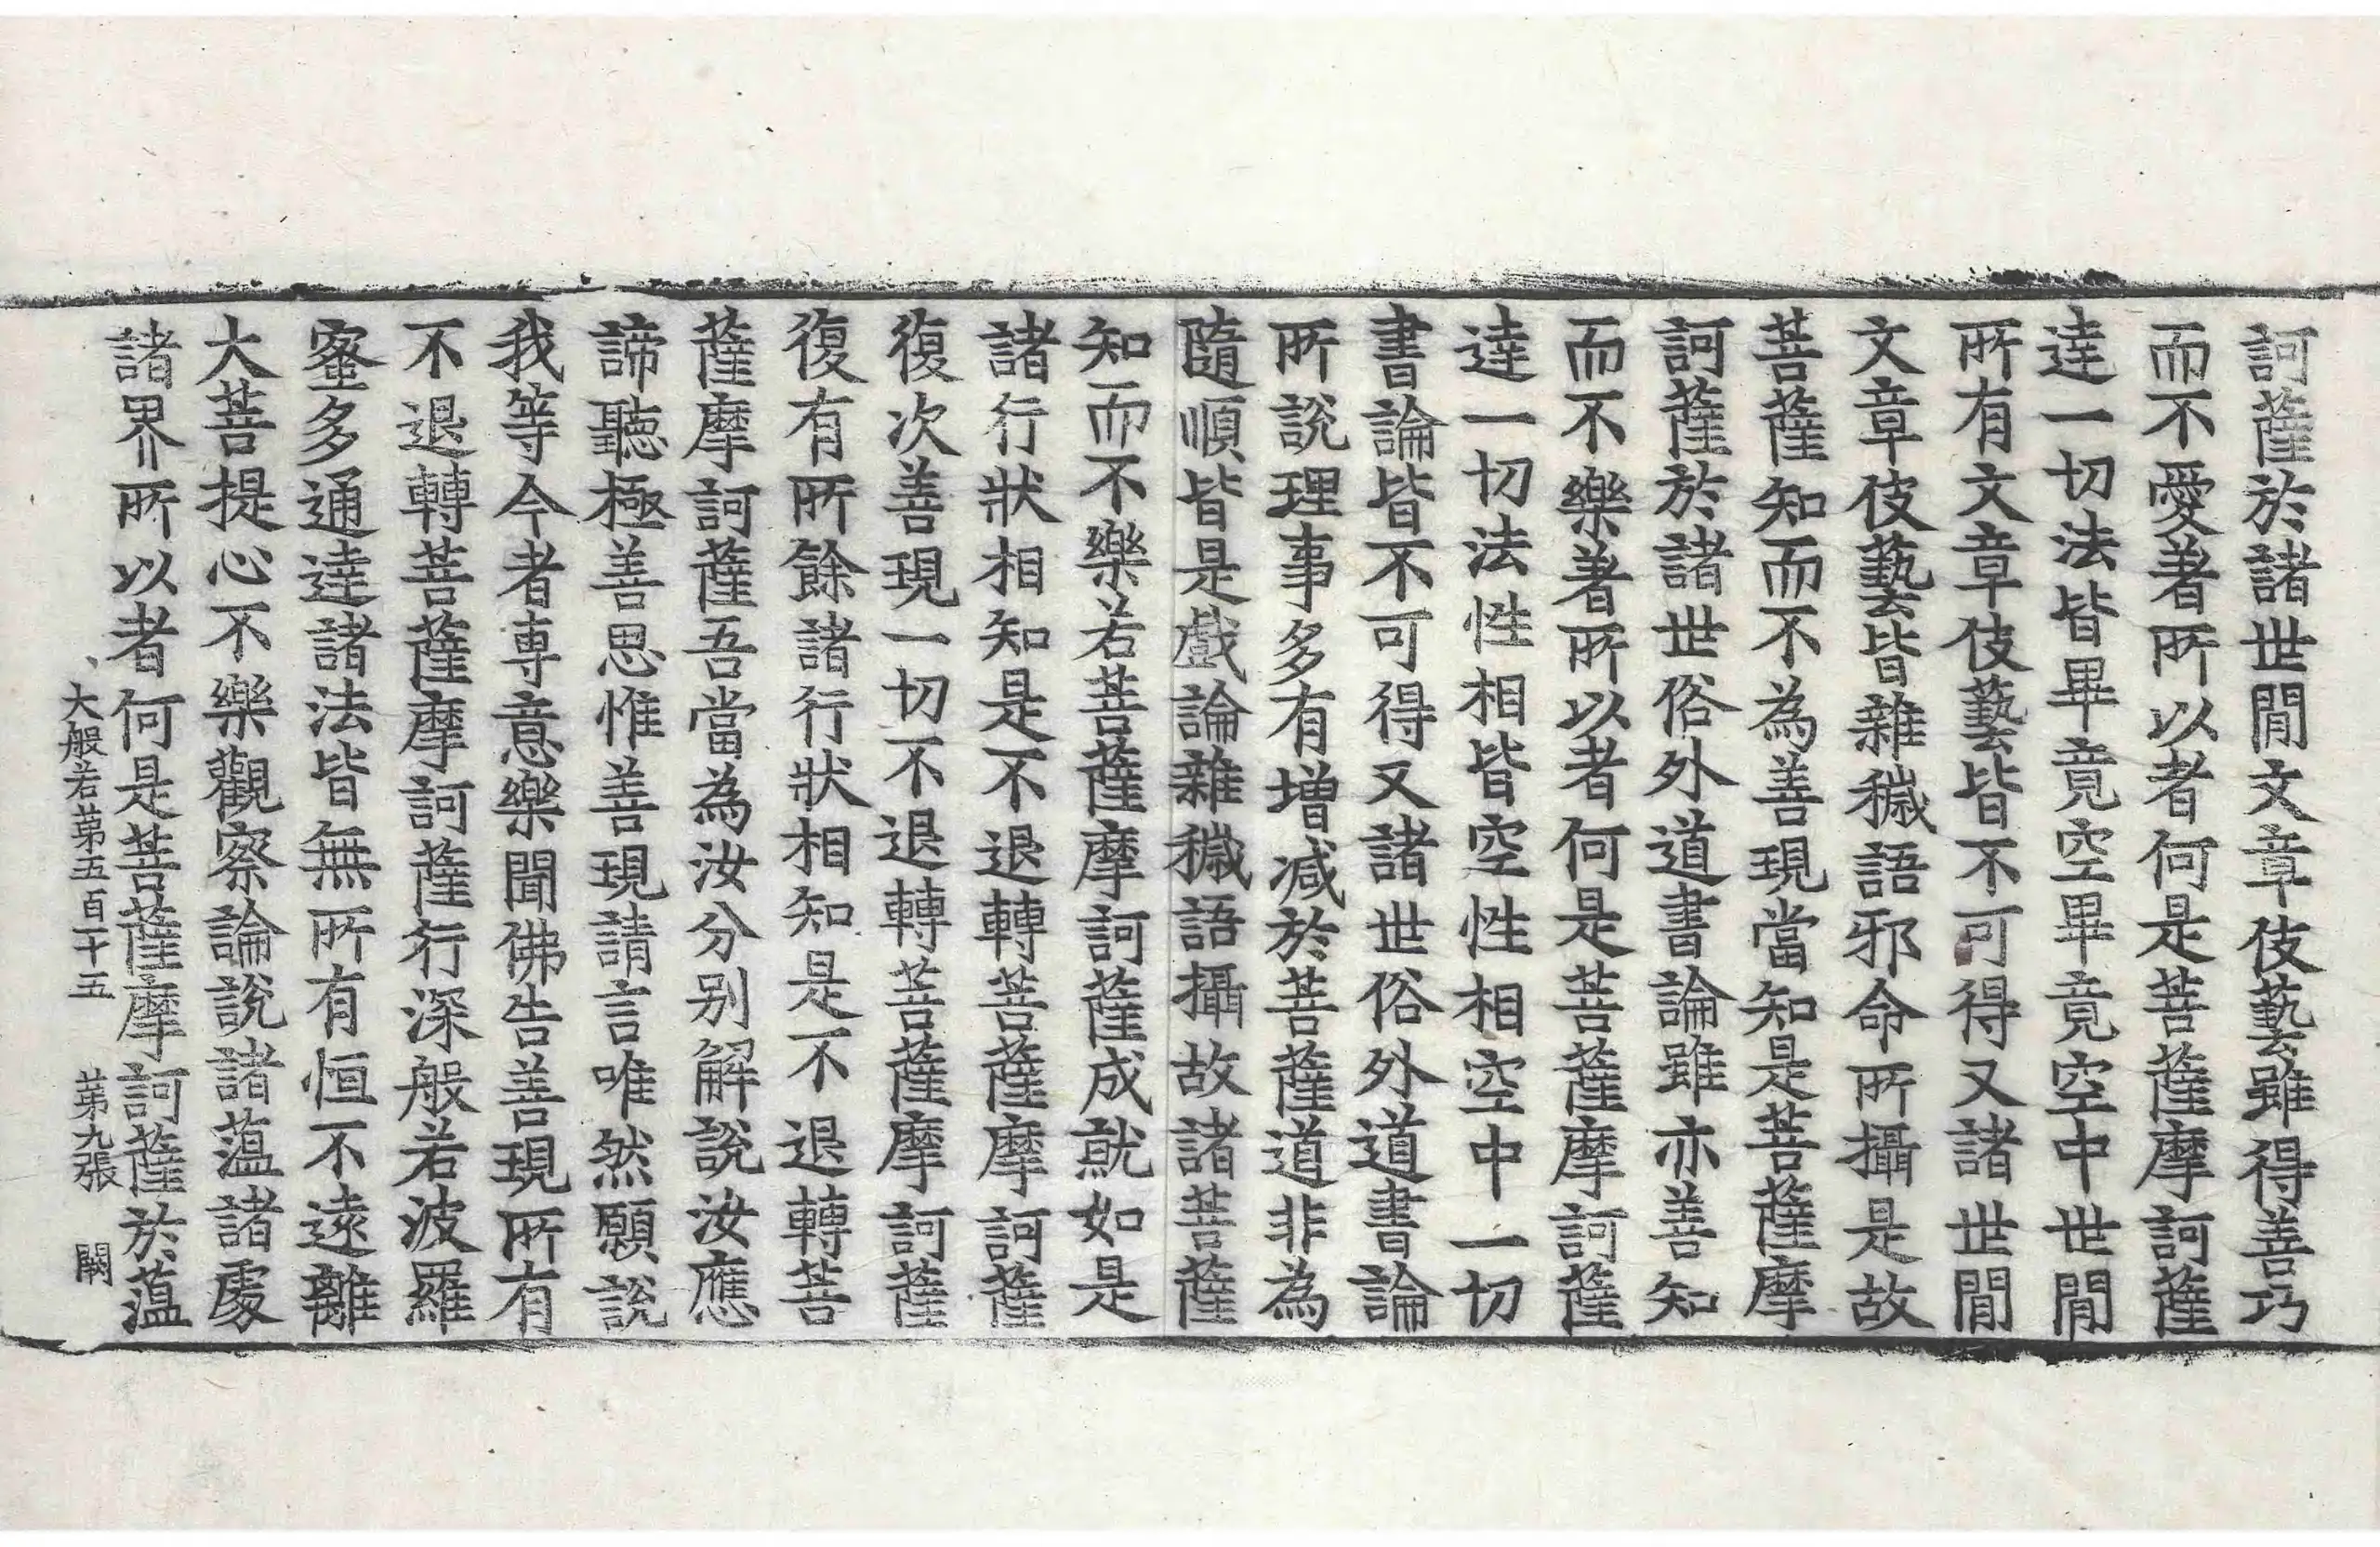 訶薩於諸世間文章伎藝雖得善巧
而不愛著所以者何是菩薩摩訶薩
達一切法皆畢竟空畢竟空中世間
所有文章伎藝皆不可得又諸世間
文章伎藝皆雜穢語邪命所攝是故
菩薩知而不為善現當知是菩薩摩
訶薩於諸世俗外道書論雖亦善知
而不樂著所以者何是菩薩摩訶薩
達一切法性相皆空性相空中一切
書論皆不可得又諸世俗外道書論
所說理事多有增減於菩薩道非為
隨順皆是戲論雜穢語攝故諸菩薩
知而不樂若菩薩摩訶薩成就如是
諸行狀相知是不退轉菩薩摩訶薩
復次善現一切不退轉菩薩摩訶薩
復有所餘諸行狀相知是不退轉菩
薩摩訶薩吾當為汝分別解說汝應
諦聽極善思惟善現請言唯然願說
我等今者專意樂聞佛告善現所有
不退轉菩薩摩訶薩行深般若波羅
蜜多通達諸法皆無所有恒不遠離
大菩提心不樂觀察論說諸蘊諸處
諸界所以者何是菩薩摩訶薩於蘊
大般若第五百一十五 第九張 闕